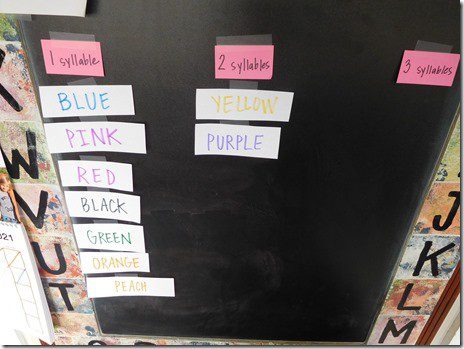 1 syllable
2 syllables
3 syllables
BLUE
PINK
RED
BLACK
GREEN
ORANGE
PEACH
YELLOW
PURPLE
W
V
U
T
J
K
L
M